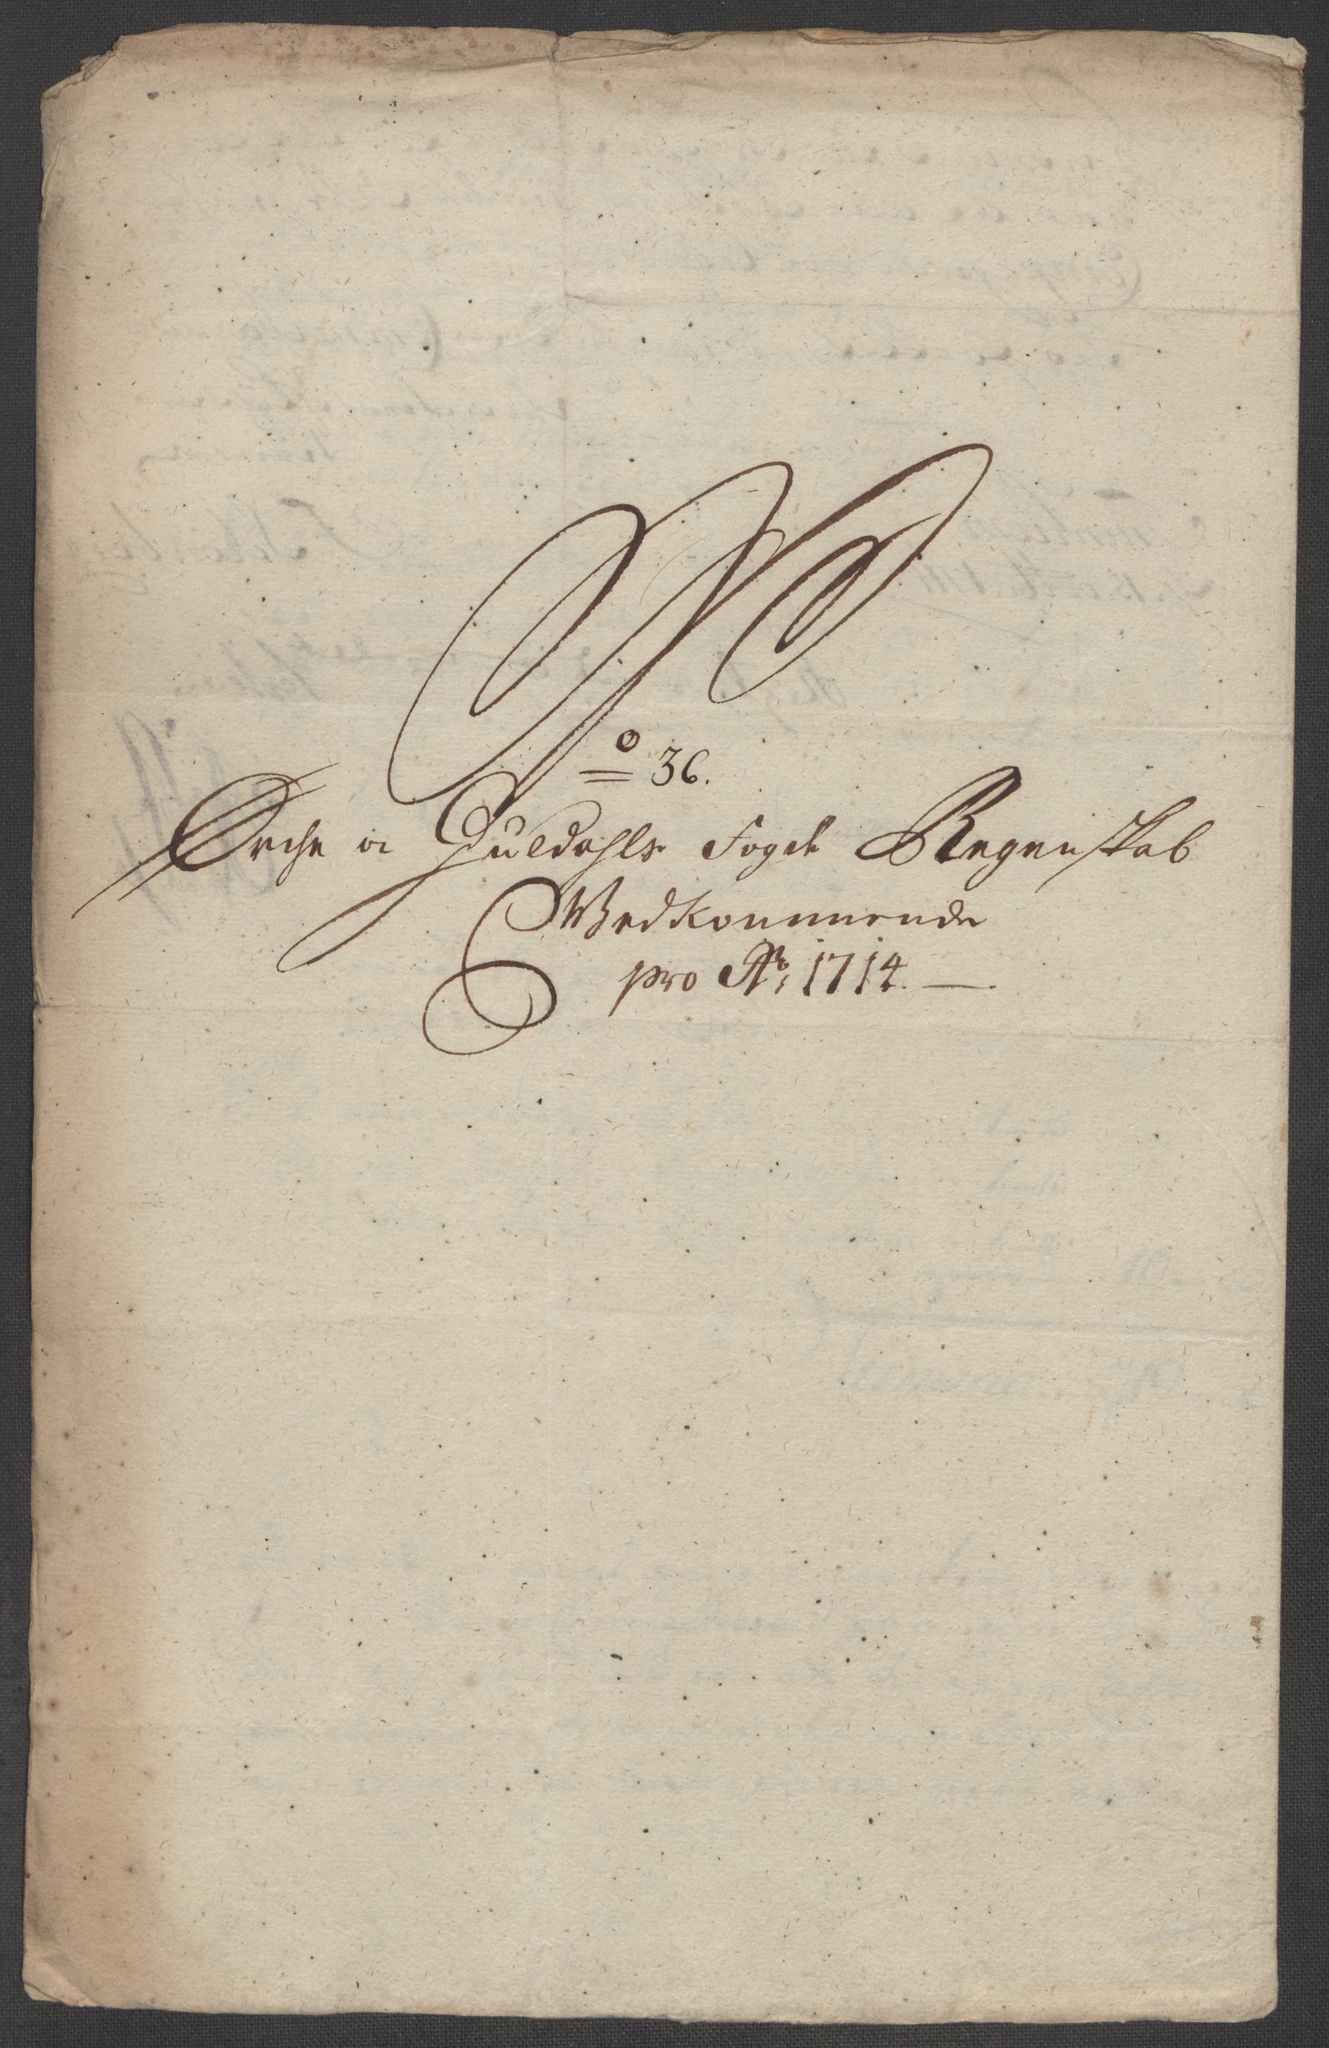 No 36.
Orche oc Guldahls Fogde Regenskab
Vedkommende
pro Ao 1714.